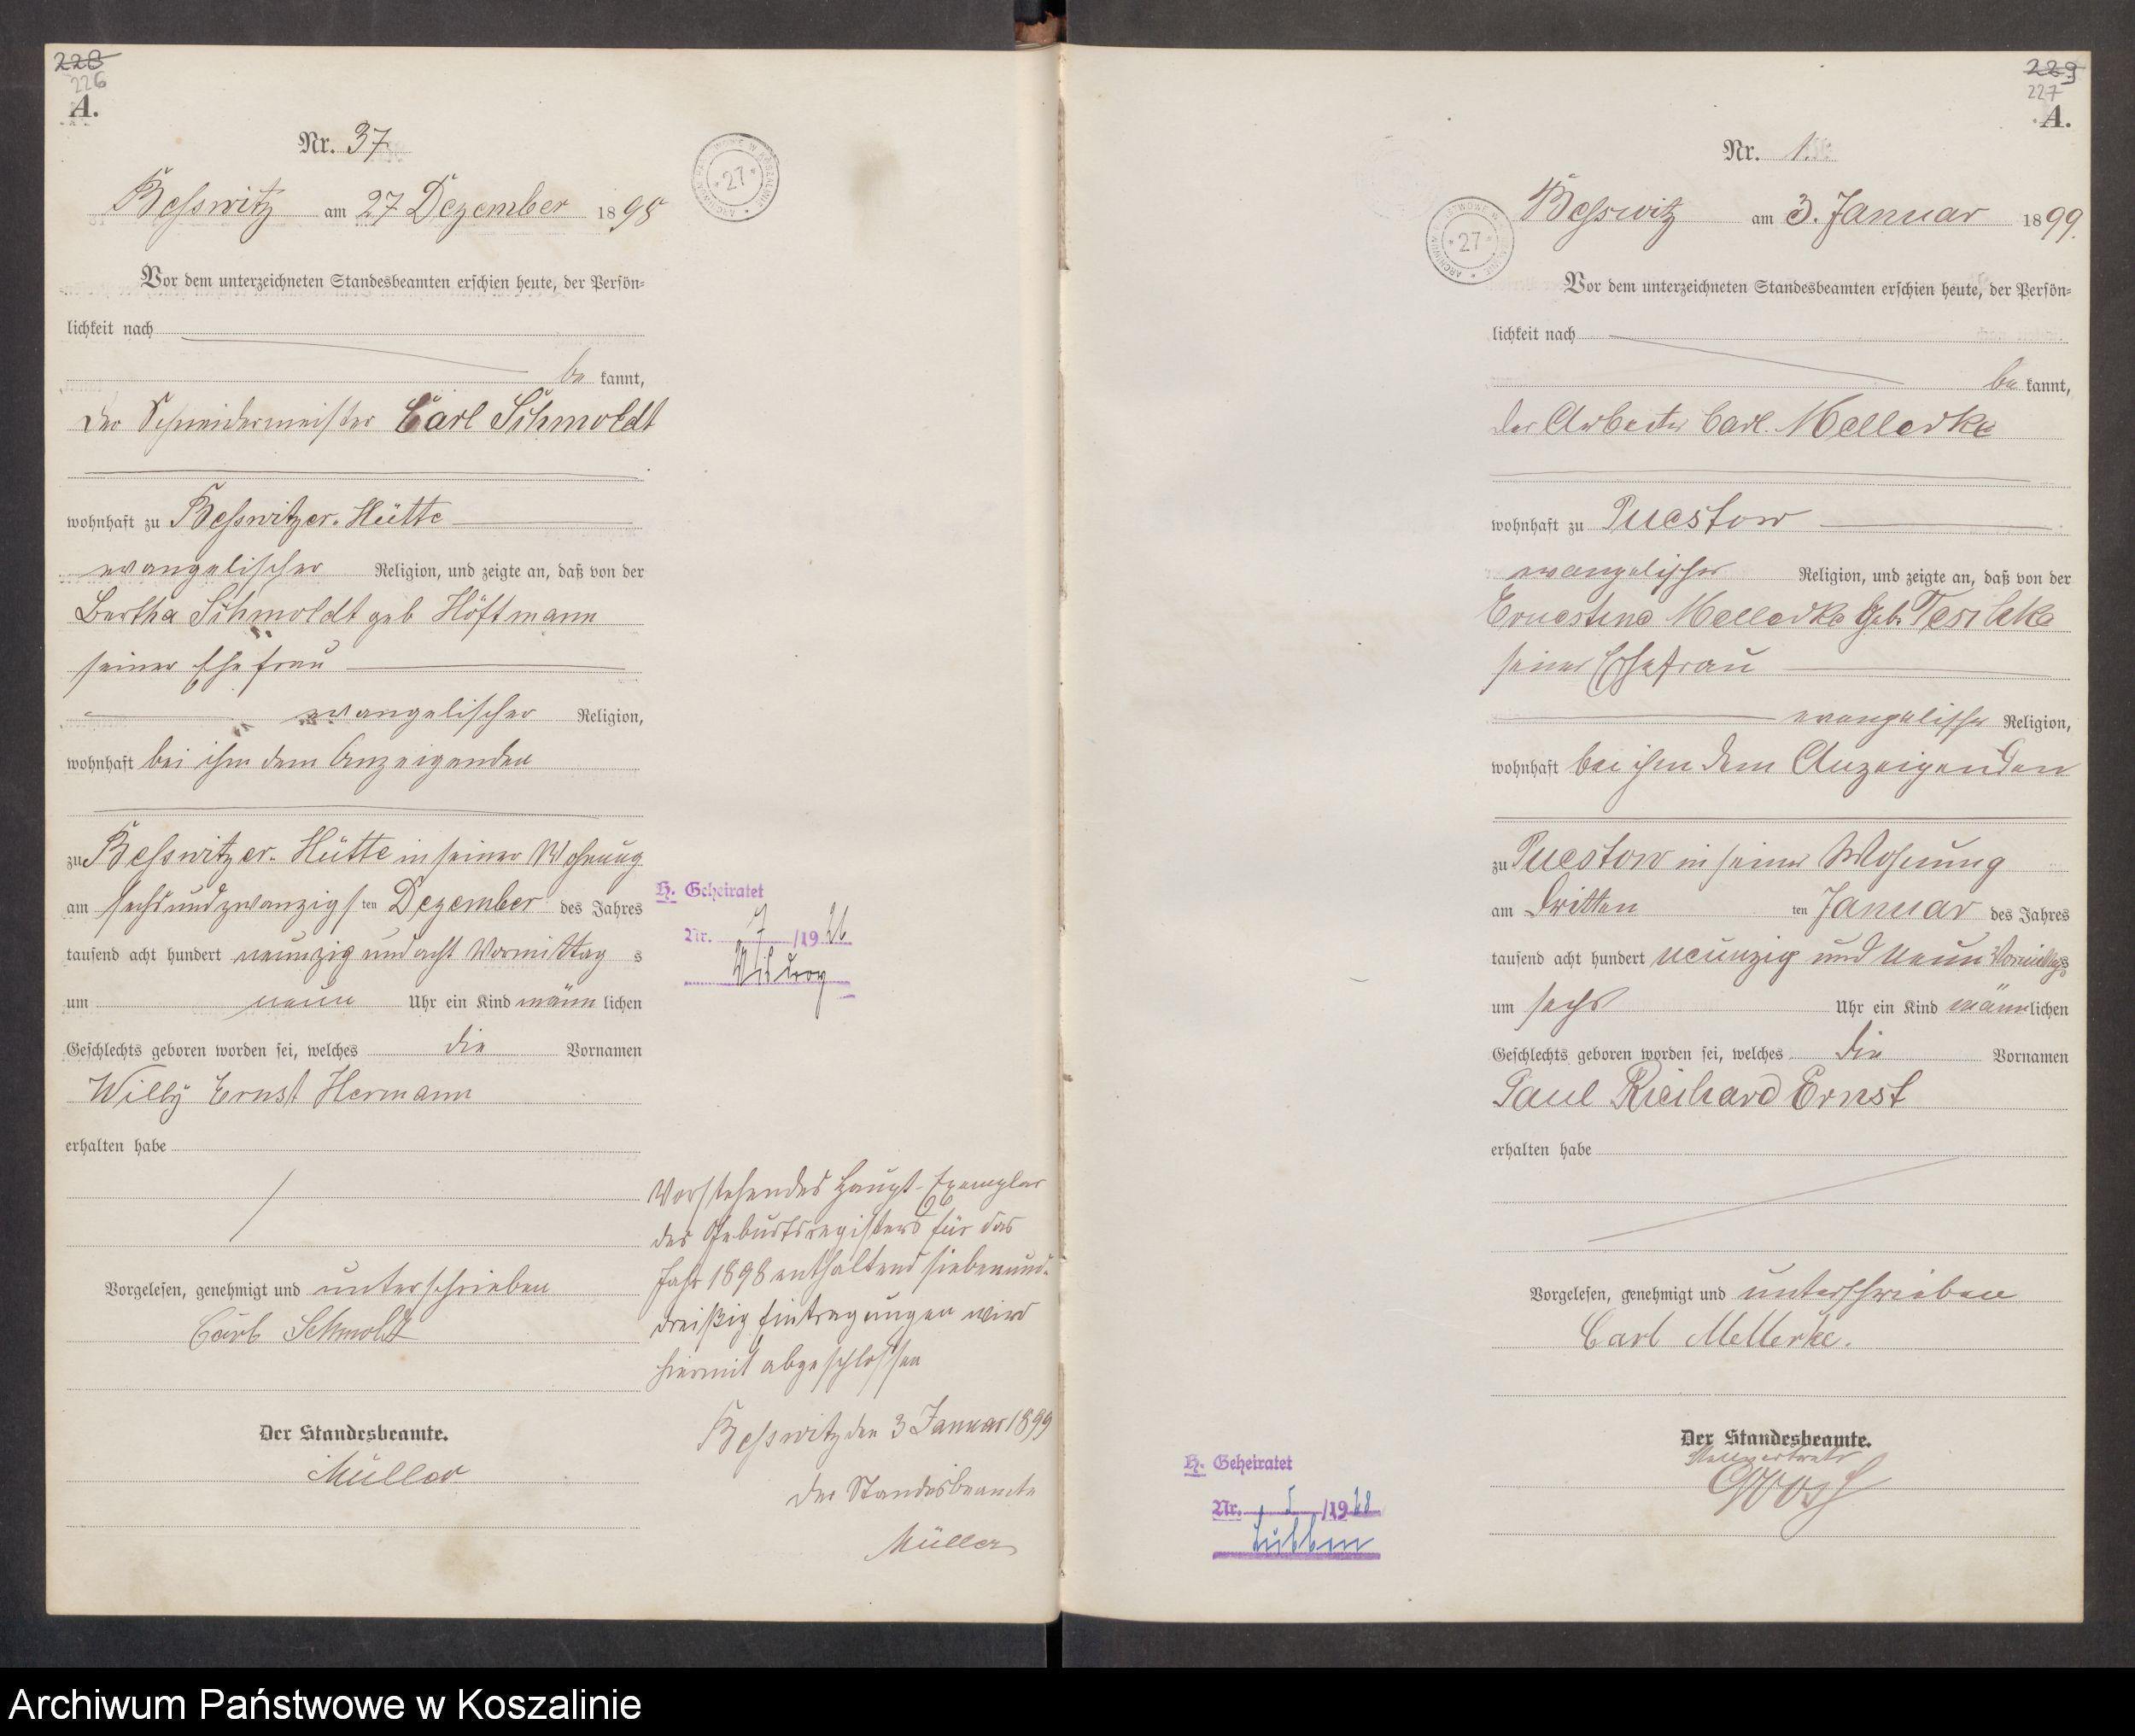 228
226
A.
Nr. 37
Besswitz am 27 Dezember 1898
Vor dem unterzeichneten Standesbeamten erschien heute, der Persön-
lichkeit nach
be kannt,
der Schneidermeister Carl Schmoldt
wohnhaft zu Besswitzer-Hütte
evangelischer Religion, und zeigte an, daß von der
Bertha Schmoldt geb Höftmann
seiner Ehefrau
evangelischer Religion,
wohnhaft bei ihm dem Anzeigenden
zu Besswitzer-Hütte in seiner Wohnung
am sechsundzwanzigsten Dezember des Jahres
tausend acht hundert neunzig und acht Vormittag s
um neun Uhr ein Kind männlichen
Geschlechts geboren worden sei, welches die Vornamen
Willy Ernst Hermann
erhalten habe
Vorgelesen, genehmigt und unterschrieben
Carl Schmoldt
Der Standesbeamte.
Müller
ARCHIWUM PAŃSTWOWE W KOSZALINIE
27
H. Geheiratet
Nr. 7/1926
Vorstehendes Haupt-Exemplar
des Geburtsregisters für das
Jahr 1898 enthaltend siebenund-
dreißig Eintragungen wird
hiermit abgeschlossen
Besswitz den 3 Januar 1899
Der Standesbeamte
Müller
229
227
A.
Nr. 1.
Besswitz am 3. Januar 1899.
ARCHIWUM PAŃSTWOWE W KOSZALINIE
27
Vor dem unterzeichneten Standesbeamten erschien heute, der Persön-
lichkeit nach
be kannt,
der Arbeiter Carl Mellerke
wohnhaft zu Puestow
evangelischer Religion, und zeigte an, daß von der
Ernestine Mellerke geb.
seiner Ehefrau
evangelischer Religion,
wohnhaft bei ihm dem Anzeigenden
zu Puestow in seiner Wohnung
am dritten ten Januar des Jahres
tausend acht hundert neunzig und neun Vormittags
um sechs Uhr ein Kind männlichen
Geschlechts geboren worden sei, welches die Vornamen
Paul Richard Ernst
erhalten habe
Vorgelesen, genehmigt und unterschrieben
Carl Mellerke.
Der Standesbeamte.
Stellvertreter
H. Geheiratet
Nr. 5/1928
Archiwum Państwowe w Koszalinie